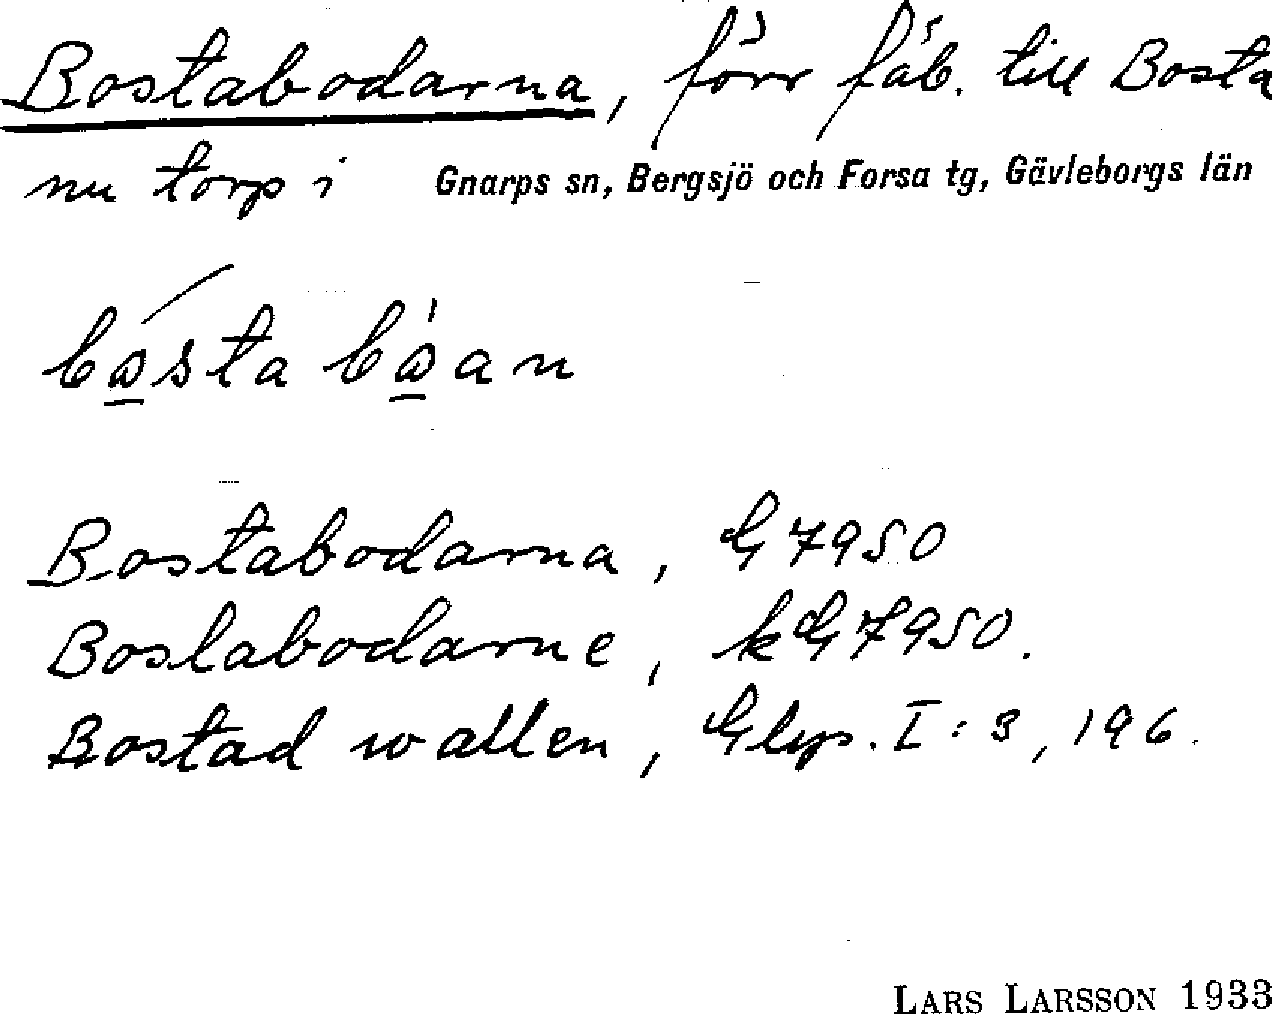 Bostabodarna, förr fäb. till Bosta
nu torp i Gnarps sn, Bergsjö och Forsa tg, Gävleborgs län
Bostabodarna, G 7950
Bostabodarne, kG 7950.
Bostad wallen, Glys. I:3, 196.
LARS LARSSON 1933